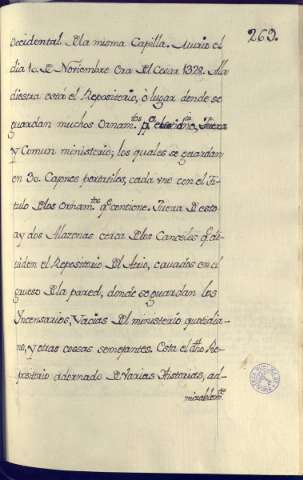 269.
Occidental. D la misma Capilla. Murio el
dia 1o. D Noviembre Era Dl Cesar 1328. A la
diestra està el Repositorio, ò lugar donde se
guardan muchos Ornam.tos p.a
y Comun ministerio; los quales se guardan
en 30. Caxones portatiles, cada uno con el Ti-
tulo Dlos Ornam.tos q.e contiene. Fuera D esto
ay dos Alazenas cerca Dlos Canceles q.e di-
viden el Repositorio Dl Atrio, cavadas en el
grueso Dla pared, donde se guardan los
Yncensarios, y Vacias Dl ministerio quotidia-
no, y otras cosas semejantes. Esta el dho Re-
positorio adornado D Varias Historias, ad-
mirablem.te